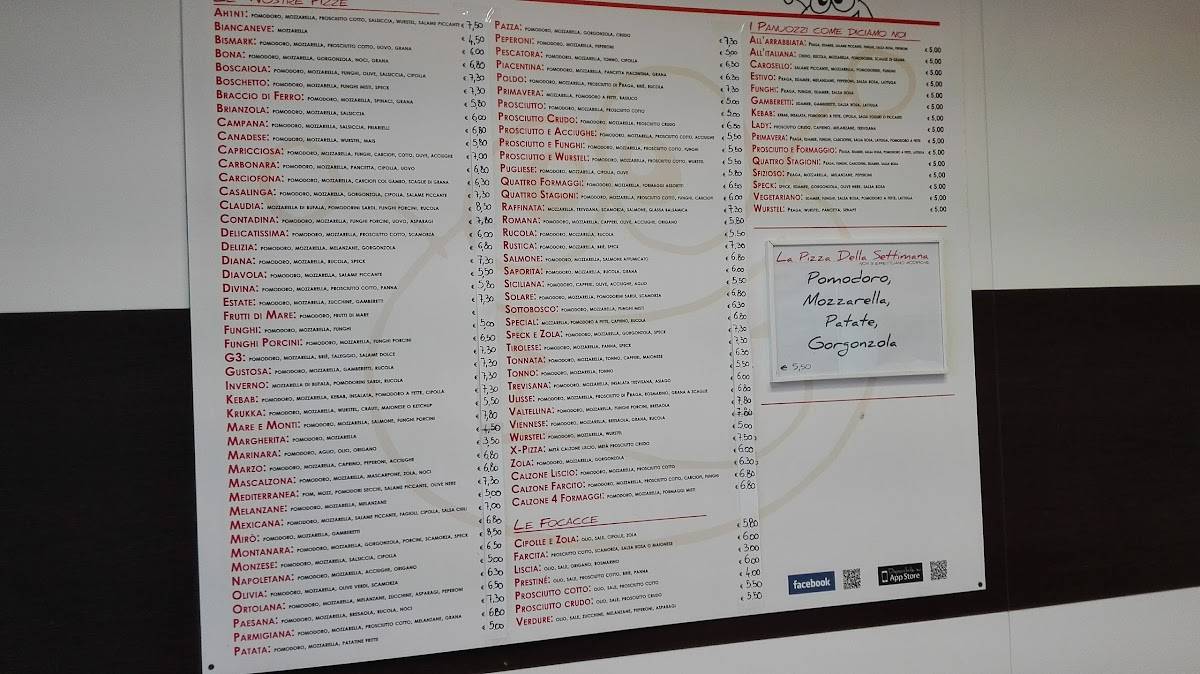 Le Nostre Pizze
Ahini: pomodoro, mozzarella, prosciutto cotto, salsiccia, wurstel, salame piccante € 7,50
Biancaneve: mozzarella € 4,50
Bismark: pomodoro, mozzarella, prosciutto cotto, uovo, grana € 6,00
Bona: pomodoro, mozzarella, gorgonzola, noci, grana € 6,80
Boscaiola: pomodoro, mozzarella, funghi, olive, salsiccia, cipolla € 7,30
Boschetto: pomodoro, mozzarella, funghi misti, speck € 7,30
Braccio di Ferro: pomodoro, mozzarella, spinaci, grana € 5,80
Brianzola: pomodoro, mozzarella, salsiccia € 6,00
Campana: pomodoro, mozzarella, salsiccia, friarielli € 6,80
Canadese: pomodoro, mozzarella, wurstel, mais € 5,80
Capricciosa: pomodoro, mozzarella, funghi, carciofi, cotto, olive, acciughe € 7,00
Carbonara: pomodoro, mozzarella, pancetta, cipolla, uovo € 6,80
Carciofona: pomodoro, mozzarella, carciofi col gambo, scaglie di grana € 6,30
Casalinga: pomodoro, mozzarella, gorgonzola, cipolla, salame piccante € 7,30
Claudia: mozzarella di bufala, pomodorini sardi, funghi porcini, rucola € 8,30
Contadina: pomodoro, mozzarella, funghi porcini, uovo, asparagi € 7,80
Delicatissima: pomodoro, mozzarella, prosciutto cotto, scamorza € 6,00
Delizia: pomodoro, mozzarella, melanzane, gorgonzola € 6,80
Diana: pomodoro, mozzarella, rucola, speck € 7,30
Diavola: pomodoro, mozzarella, salame piccante € 5,50
Divina: pomodoro, mozzarella, prosciutto cotto, panna € 5,80
Estate: pomodoro, mozzarella, zucchine, gamberetti € 7,30
Frutti di Mare: pomodoro, frutti di mare €
Funghi: pomodoro, mozzarella, funghi € 5,00
Funghi Porcini: pomodoro, mozzarella, funghi porcini € 6,50
G3: pomodoro, mozzarella, briè, taleggio, salame dolce € 7,30
Gustosa: pomodoro, mozzarella, gamberetti, rucola € 7,30
Inverno: mozzarella di bufala, pomodorini sardi, rucola € 7,30
Kebab: pomodoro, mozzarella, kebab, insalata, pomodoro a fette, cipolla € 7,30
Krukka: pomodoro, mozzarella, wurstel, crauti, maionese o ketchup € 5,50
Mare e Monti: pomodoro, mozzarella, salmone, funghi porcini € 7,80
Margherita: pomodoro, mozzarella € 4,50
Marinara: pomodoro, aglio, olio, origano € 3,50
Marzo: pomodoro, mozzarella, caprino, peperoni, acciughe € 6,80
Mascalzona: pomodoro, mozzarella, mascarpone, zola, noci € 6,80
Mediterranea: pom, mozz, pomodori secchi, salame piccante, olive nere € 7,30
Melanzane: pomodoro, mozzarella, melanzane € 5,00
Mexicana: pomodoro, mozzarella, salame piccante, fagioli, cipolla, salsa chili € 7,00
Mirò: pomodoro, mozzarella, gamberetti € 6,80
Montanara: pomodoro, mozzarella, gorgonzola, porcini, scamorza, speck € 8,50
Monzese: pomodoro, mozzarella, salsiccia, cipolla € 6,50
Napoletana: pomodoro, mozzarella, acciughe, origano € 5,00
Olivia: pomodoro, mozzarella, olive verdi, scamorza € 6,30
Ortolana: pomodoro, mozzarella, melanzane, zucchine, asparagi, peperoni € 6,50
Paesana: pomodoro, mozzarella, bresaola, rucola, noci € 7,30
Parmigiana: pomodoro, mozzarella, prosciutto cotto, melanzane, grana € 6,80
Patata: pomodoro, mozzarella, patatine fritte € 5,00
Pazza: pomodoro, mozzarella, gorgonzola, crudo € 7,30
Peperoni: pomodoro, mozzarella, peperoni € 5,00
Pescatora: pomodoro, mozzarella, tonno, cipolla € 6,30
Piacentina: pomodoro, mozzarella, pancetta piacentina, grana € 6,30
Poldo: pomodoro, mozzarella, prosciutto di Praga, briè, rucola € 7,30
Primavera: mozzarella, pomodoro a fette, basilico € 5,00
Prosciutto: pomodoro, mozzarella, prosciutto cotto € 5,00
Prosciutto Crudo: pomodoro, mozzarella, prosciutto crudo € 6,50
Prosciutto e Acciughe: pomodoro, mozzarella, prosciutto cotto, acciughe € 5,50
Prosciutto e Funghi: pomodoro, mozzarella, prosciutto cotto, funghi € 5,50
Prosciutto e Wurstel: pomodoro, mozzarella, prosciutto cotto, wurstel € 5,50
Pugliese: pomodoro, mozzarella, cipolla, olive € 5,80
Quattro Formaggi: pomodoro, mozzarella, formaggi assortiti € 6,50
Quattro Stagioni: pomodoro, mozzarella, prosciutto cotto, funghi, carciofi € 6,00
Raffinata: mozzarella, trevisana, scamorza, salmone, glassa balsamica € 7,30
Romana: pomodoro, mozzarella, capperi, olive, acciughe, origano € 5,80
Rucola: pomodoro, mozzarella, rucola € 5,50
Rustica: pomodoro, mozzarella, briè, speck € 7,30
Salmone: pomodoro, mozzarella, salmone affumicato € 6,80
Saporita: pomodoro, mozzarella, rucola, grana € 6,00
Siciliana: pomodoro, capperi, olive, acciughe, aglio € 5,50
Solare: pomodoro, mozzarella, pomodorini sardi, scamorza € 6,80
Sottobosco: pomodoro, mozzarella, funghi misti € 6,30
Special: mozzarella, pomodoro a fette, caprino, rucola € 6,80
Speck e Zola: pomodoro, mozzarella, gorgonzola, speck € 7,30
Tirolese: pomodoro, mozzarella, panna, speck € 7,30
Tonnata: pomodoro, mozzarella, tonno, capperi, maionese € 6,30
Tonno: pomodoro, mozzarella, tonno € 5,50
Trevisana: pomodoro, mozzarella, insalata trevisana, asiago € 6,00
Ulisse: pomodoro, mozzarella, prosciutto di Praga, rosmarino, grana a scaglie € 6,80
Valtellina: pomodoro, mozzarella, funghi porcini, bresaola € 7,80
Viennese: pomodoro, mozzarella, bresaola, grana, rucola € 7,80
Wurstel: pomodoro, mozzarella, wurstel € 5,00
X-Pizza: metà calzone liscio, metà prosciutto crudo € 7,50
Zola: pomodoro, mozzarella, gorgonzola € 6,00
Calzone Liscio: pomodoro, mozzarella, prosciutto cotto € 6,30
Calzone Farcito: pomodoro, mozzarella, prosciutto cotto, carciofi, funghi € 6,80
Calzone 4 Formaggi: pomodoro, mozzarella, formaggi misti € 6,80
Le Focacce
Cipolle e Zola: olio, sale, cipolle, zola € 5,80
Farcita: prosciutto cotto, scamorza, salsa rosa o maionese € 6,00
Liscia: olio, sale, origano, rosmarino € 3,00
Prestinè: olio, sale, prosciutto cotto, briè, panna € 6,00
Prosciutto cotto: olio, sale, prosciutto cotto € 4,00
Prosciutto crudo: olio, sale, prosciutto crudo € 5,50
Verdure: olio, sale, zucchine, melanzane, peperoni, asparagi € 5,50
I Panuozzi come diciamo noi
All'arrabbiata: Praga, edamer, salame piccante, funghi, salsa rosa, peperoni € 5,00
All'italiana: crudo, rucola, mozzarella, pomodorini, scaglie di grana € 5,00
Carosello: salame piccante, mozzarella, pomodorini, funghi € 5,00
Estivo: Praga, edamer, melanzane, peperoni, salsa rosa, lattuga € 5,00
Funghi: Praga, funghi, edamer, salsa rosa € 5,00
Gamberetti: edamer, gamberetti, salsa rosa, lattuga € 5,00
Kebab: kebab, insalata, pomodoro a fette, cipolla, salsa yogurt o piccante € 5,00
Lady: prosciutto crudo, caprino, melanzane, trevisana € 5,00
Primavera: Praga, edamer, funghi, carciofini, salsa rosa, lattuga, pomodoro a fette € 5,00
Prosciutto e Formaggio: Praga, edamer, salsa rosa, pomodoro a fette, lattuga € 5,00
Quattro Stagioni: Praga, funghi, carciofini, edamer, salsa rosa € 5,00
Sfizioso: Praga, mozzarella, melanzane, peperoni € 5,00
Speck: speck, edamer, gorgonzola, olive nere, salsa rosa € 5,00
Vegetariano: edamer, funghi, salsa rosa, pomodoro a fette, lattuga € 5,00
Wurstel: Praga, wurstel, pancetta, senape € 5,00
La Pizza Della Settimana
non si effettuano modifiche
Pomodoro,
Mozzarella,
Patate,
Gorgonzola
€ 5,50
facebook
Disponibile su
App Store